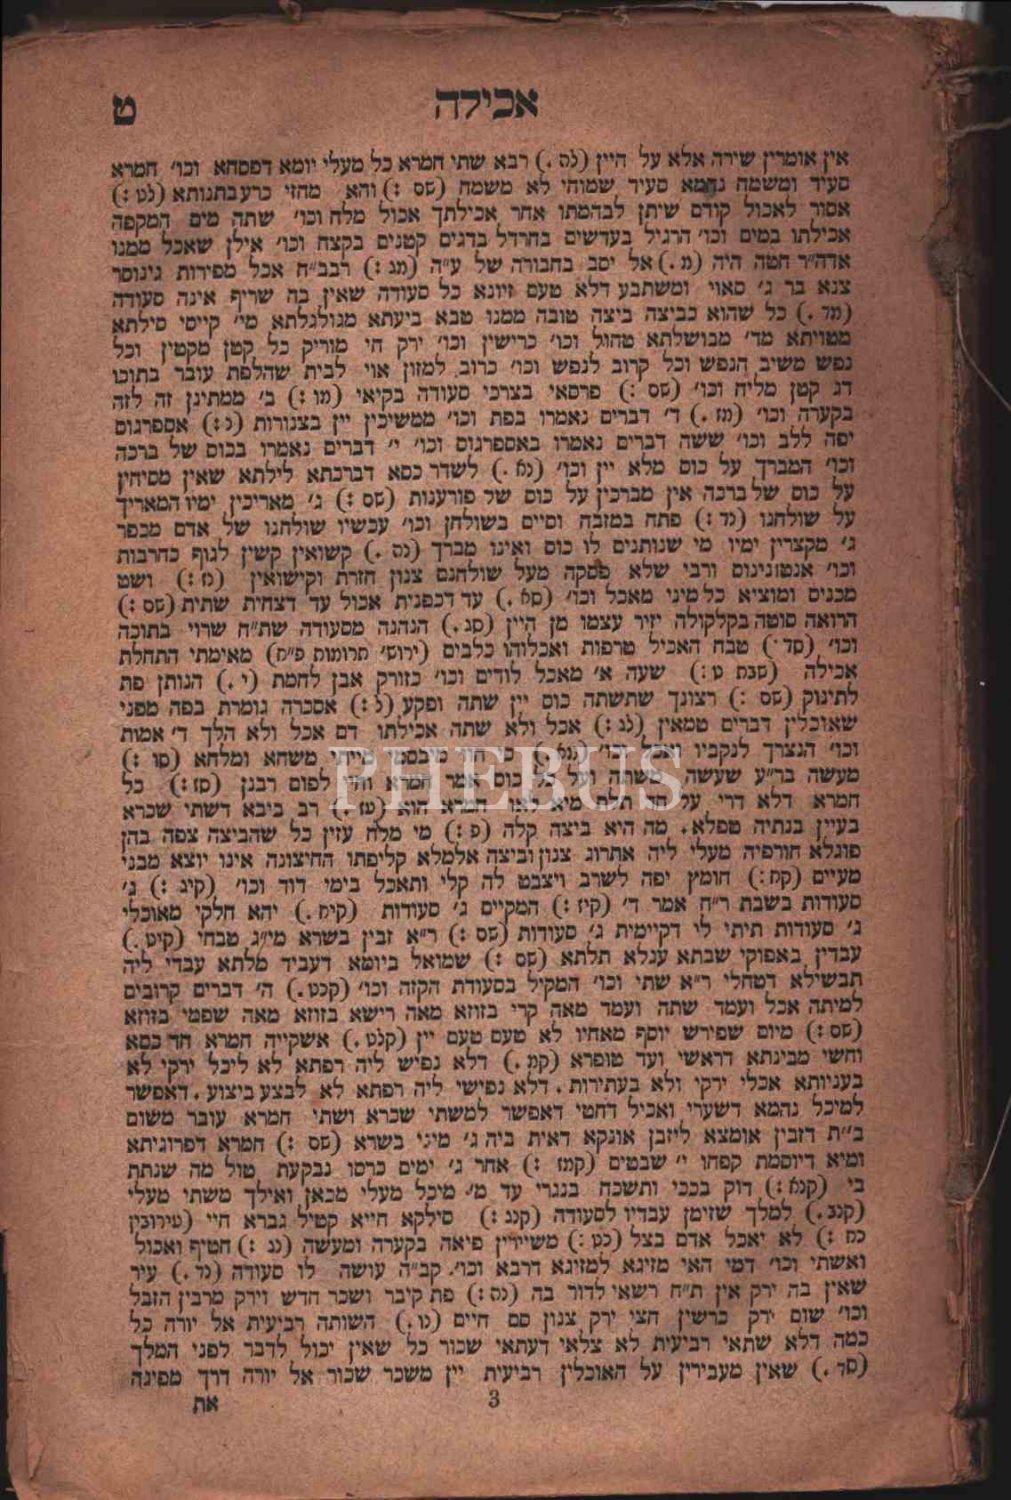 אכילה
ט
אין אומרין שירה אלא על היין (לה.) רבא שתי חמרא כל מעלי יומא דפסחא וכו׳ חמרא
סעיד ומשמח נהמא סעיד שמוחי לא משמח (שם:) והא מחזי כרעבתנותא (לט:)
אסור לאכול קודם שיתן לבהמתו אחר אכילתך אכול מלח וכו׳ שתה מים המקפה
אכילתו במים וכו׳ הרגיל בעדשים בחרדל בדגים קטנים בקצח וכו׳ אילן שאכל ממנו
אדה״ר חטה היה (מ.) אל יסב בחבורה של ע״ה (מג:) רבב״ח אכל מפירות גינוסר
צנא בר ג׳ סאוי ומשתבע דלא טעם זיונא כל סעודה שאין בה שריף אינה סעודה
(מד.) כל שהוא כביצה ביצה טובה ממנו טבא ביעתא מגולגלתא מו׳ קייסי סילתא
מטויתא מד׳ מבושלתא טחול וכו׳ כרישין וכו׳ ירק חי מוריק כל קטן מקטין וכל
נפש משיב הנפש וכל קרוב לנפש וכו׳ כרוב למזון אוי לבית שהלפת עובר בתוכו
דג קטן מליח וכו׳ (שם:) פרסאי בצרכי סעודה בקיאי (מו:) ב׳ ממתינן זה לזה
בקערה וכו׳ (מז.) ד׳ דברים נאמרו בפת וכו׳ ממשיכין יין בצנורות (נ:) אספרגוס
יפה ללב וכו׳ ששה דברים נאמרו באספרגוס וכו׳ י׳ דברים נאמרו בכוס של ברכה
וכו׳ המברך על כוס מלא יין וכו׳ (נא.) לשדר כסא דברכתא לילתא שאין מסיחין
על כוס של ברכה אין מברכין על כוס של פורענות (שם:) ג׳ מאריכין ימיו המאריך
על שולחנו (נד:) פתח במזבח וסיים בשולחן וכו׳ עכשיו שולחנו של אדם מכפר
ג׳ מקצרין ימיו מי שנותנים לו כוס ואינו מברך (נה.) קשואין קשין לגוף כחרבות
וכו׳ אנטונינוס ורבי שלא פסקה מעל שולחנם צנון חזרת וקישואין (נז:) ושט
מכנים ומוציא כל מיני מאכל וכו׳ (סא.) עד דכפנית אכול עד דצחית שתית (שם:)
הרואה סוטה בקלקולה יזיר עצמו מן היין (סג.) הנהנה מסעודה שת״ח שרוי בתוכה
וכו׳ (סד.) טבח האכיל טרפות ואכלוהו כלבים (ירוש׳ תרומות פ״ח) מאימתי התחלת
אכילה (שבת ט:) שעה א׳ מאכל לודים וכו׳ כזורק אבן לחמת (י.) הנותן פת
לתינוק (שם:) רצונך שתשתה כוס יין שתה ופקע (ל:) אסכרה גומרת בפה מפני
שאוכלין דברים טמאין (לג:) אכל ולא שתה אכילתו דם אכל ולא הלך ד׳ אמות
וכו׳ הנצרך לנקביו ואכל וכו׳ (מא.) כי חזו מיבסמי מייתי משחא ומלחא (סו:)
מעשה בר״ע שעשה משתה ועל כל כוס אמר חמרא וחיי לפום רבנן (סז:) כל
חמרא דלא דרי על חד תלת מיא לאו חמרא הוא (עז.) רב ביבא דשתי שכרא
בעיין בנתיה טפלא. מה היא ביצה קלה (פ:) מי מלח עזין כל שהביצה צפה בהן
פוגלא חורפיה מעלי ליה אתרוג צנון וביצה אלמלא קליפתו החיצונה אינו יוצא מבני
מעיים (קח:) חומץ יפה לשרב ויצבט לה קלי ותאכל בימי דוד וכו׳ (קיג:) ג׳
סעודות בשבת ר״ח אמר ד׳ (קיז:) המקיים ג׳ סעודות (קיח.) יהא חלקי מאוכלי
ג׳ סעודות תיתי לי דקיימית ג׳ סעודות (שם:) ר״א זבין בשרא מי״ג טבחי (קיט.)
עבדין באפוקי שבתא עגלא תלתא (שם:) שמואל ביומא דעביד מלתא עבדי ליה
תבשילא דטחלי ר״א שתי וכו׳ המקיל בסעודת הקזה וכו׳ (קכט.) ה׳ דברים קרובים
למיתה אכל ועמד שתה ועמד מאה קרי בזוזא מאה רישא בזוזא מאה שפמי בזוזא
(שם:) מיום שפירש יוסף מאחיו לא טעם טעם יין (קלט.) אשקייה חמרא חד כסא
וחשי מבינתא דראשי ועד טופרא (קמ.) דלא נפיש ליה רפתא לא ליכל ירקי לא
בעניותא אכלי ירקי ולא בעתירות. דלא נפישי ליה רפתא לא לבצע ביצוע. דאפשר
למיכל נהמא דשערי ואכיל דחטי דאפשר למשתי שכרא ושתי חמרא עובר משום
ב״ת דזבין אומצא ליזבן אונקא דאית ביה ג׳ מיני בשרא (שם:) חמרא דפרוגיתא
ומיא דיוסמת קפחו י׳ שבטים (קמז:) אחר ג׳ ימים כרסו נבקעת טול מה שנתת
בי (קנא:) דוק בככי ותשכח בנגרי עד מ׳ מיכל מעלי מכאן ואילך משתי מעלי
(קנב.) למלך שזימן עבדיו לסעודה (קנג:) סילקא חייא קטיל גברא חיי (עירובין
כח:) לא יאכל אדם בצל (כט:) משיירין פיאה בקערה ומעשה (נג:) חטיף ואכול
ואשתי וכו׳ דמי האי מזיגא למזיגא דרבא וכו׳. קב״ה עושה לו סעודה (נד.) עיר
שאין בה ירק אין ת״ח רשאי לדור בה (נה:) פת קיבר ושכר חדש וירק מרבין הזבל
וכו׳ שום ירק כרשין חצי ירק צנון סם חיים (נו.) השותה רביעית אל יורה כל
כמה דלא שתאי רביעית לא צלאי דעתאי שכור כל שאין יכול לדבר לפני המלך
(סד.) שאין מעבירין על האוכלין רביעית יין משכר שכור אל יורה דרך מפיגה
3
את
PHEBUS